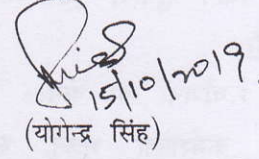 15/10/2019
(योगेन्द्र सिंह)